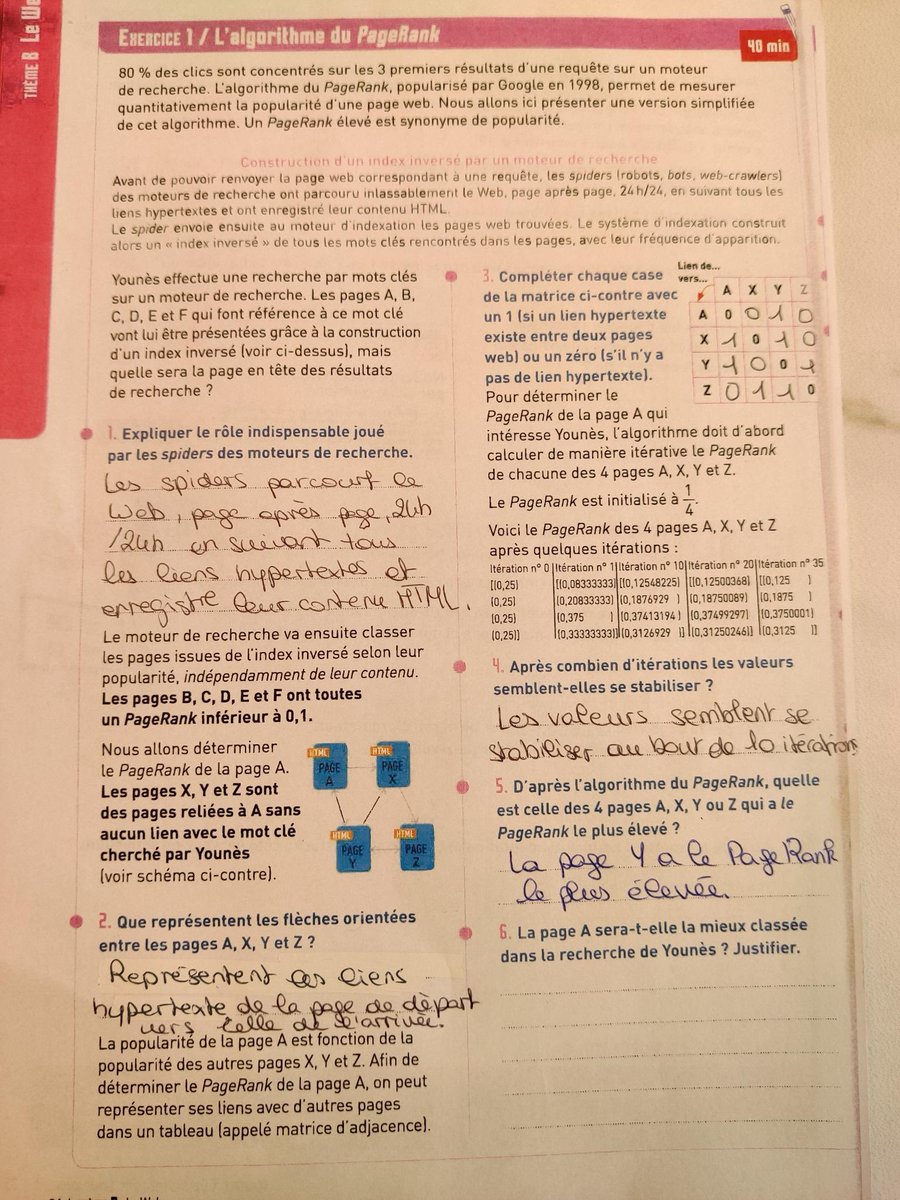 THÈME B Le We
EXERCICE 1 / L'algorithme du PageRank
40 min
80 % des clics sont concentrés sur les 3 premiers résultats d'une requête sur un moteur
de recherche. L'algorithme du PageRank, popularisé par Google en 1998, permet de mesurer
quantitativement la popularité d'une page web. Nous allons ici présenter une version simplifiée
de cet algorithme. Un PageRank élevé est synonyme de popularité.
Construction d'un index inversé par un moteur de recherche
Avant de pouvoir renvoyer la page web correspondant à une requête, les spiders (robots, bots, web-crawlers)
des moteurs de recherche ont parcouru inlassablement le Web, page après page, 24h/24, en suivant tous les
liens hypertextes et ont enregistré leur contenu HTML.
Le spider envoie ensuite au moteur d'indexation les pages web trouvées. Le système d'indexation construit
alors un « index inversé » de tous les mots clés rencontrés dans les pages, avec leur fréquence d'apparition.
Younès effectue une recherche par mots clés
sur un moteur de recherche. Les pages A, B,
C, D, E et F qui font référence à ce mot clé
vont lui être présentées grâce à la construction
d'un index inversé (voir ci-dessus), mais
quelle sera la page en tête des résultats
de recherche ?
1. Expliquer le rôle indispensable joué
par les spiders des moteurs de recherche.
Les spiders parcourt le
Web, page après page, 24h
/24h en suivant tous
les liens hypertextes et
enregistre leur contenu HTML.
Le moteur de recherche va ensuite classer
les pages issues de l'index inversé selon leur
popularité, indépendamment de leur contenu.
Les pages B, C, D, E et F ont toutes
un PageRank inférieur à 0,1.
Nous allons déterminer
le PageRank de la page A.
Les pages X, Y et Z sont
des pages reliées à A sans
aucun lien avec le mot clé
cherché par Younès
(voir schéma ci-contre).
HTML PAGE A
HTML PAGE X
HTML PAGE Y
HTML PAGE Z
2. Que représentent les flèches orientées
entre les pages A, X, Y et Z ?
Représentent les liens
hypertexte de la page de départ
vers celle de l'arrivée.
La popularité de la page A est fonction de la
popularité des autres pages X, Y et Z. Afin de
déterminer le PageRank de la page A, on peut
représenter ses liens avec d'autres pages
dans un tableau (appelé matrice d'adjacence).
3. Compléter chaque case
de la matrice ci-contre avec
un 1 (si un lien hypertexte
existe entre deux pages
web) ou un zéro (s'il n'y a
pas de lien hypertexte).
Lien de...
vers...
A X Y Z
A 0 0 1 0
X 1 0 1 0
Y 1 0 0 1
Z 0 1 1 0
Pour déterminer le
PageRank de la page A qui
intéresse Younès, l'algorithme doit d'abord
calculer de manière itérative le PageRank
de chacune des 4 pages A, X, Y et Z.
Le PageRank est initialisé à 1/4.
Voici le PageRank des 4 pages A, X, Y et Z
après quelques itérations :
Itération n° 0 Itération n° 1 Itération n° 10 Itération n° 20 Itération n° 35
[(0,25) [(0,08333333) [(0,12548225) [(0,12500368) [(0,125 ]
(0,25) (0,20833333) (0,1876929 ) (0,18750089) (0,1875 )
(0,25) (0,375 ) (0,37413194 ) (0,37499297) (0,3750001)
(0,25)] (0,33333333)] (0,3126929 )] (0,31250246)] (0,3125 )]
4. Après combien d'itérations les valeurs
semblent-elles se stabiliser ?
Les valeurs semblent se
stabiliser au bout de 10 itérations
5. D'après l'algorithme du PageRank, quelle
est celle des 4 pages A, X, Y ou Z qui a le
PageRank le plus élevé ?
La page Y a le PageRank
le plus élevée.
6. La page A sera-t-elle la mieux classée
dans la recherche de Younès ? Justifier.